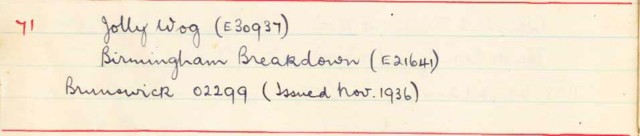 71 Jolly Wog (E30937)
Birmingham Breakdown (E21641)
Brunswick 02299 (Issued Nov. 1936)